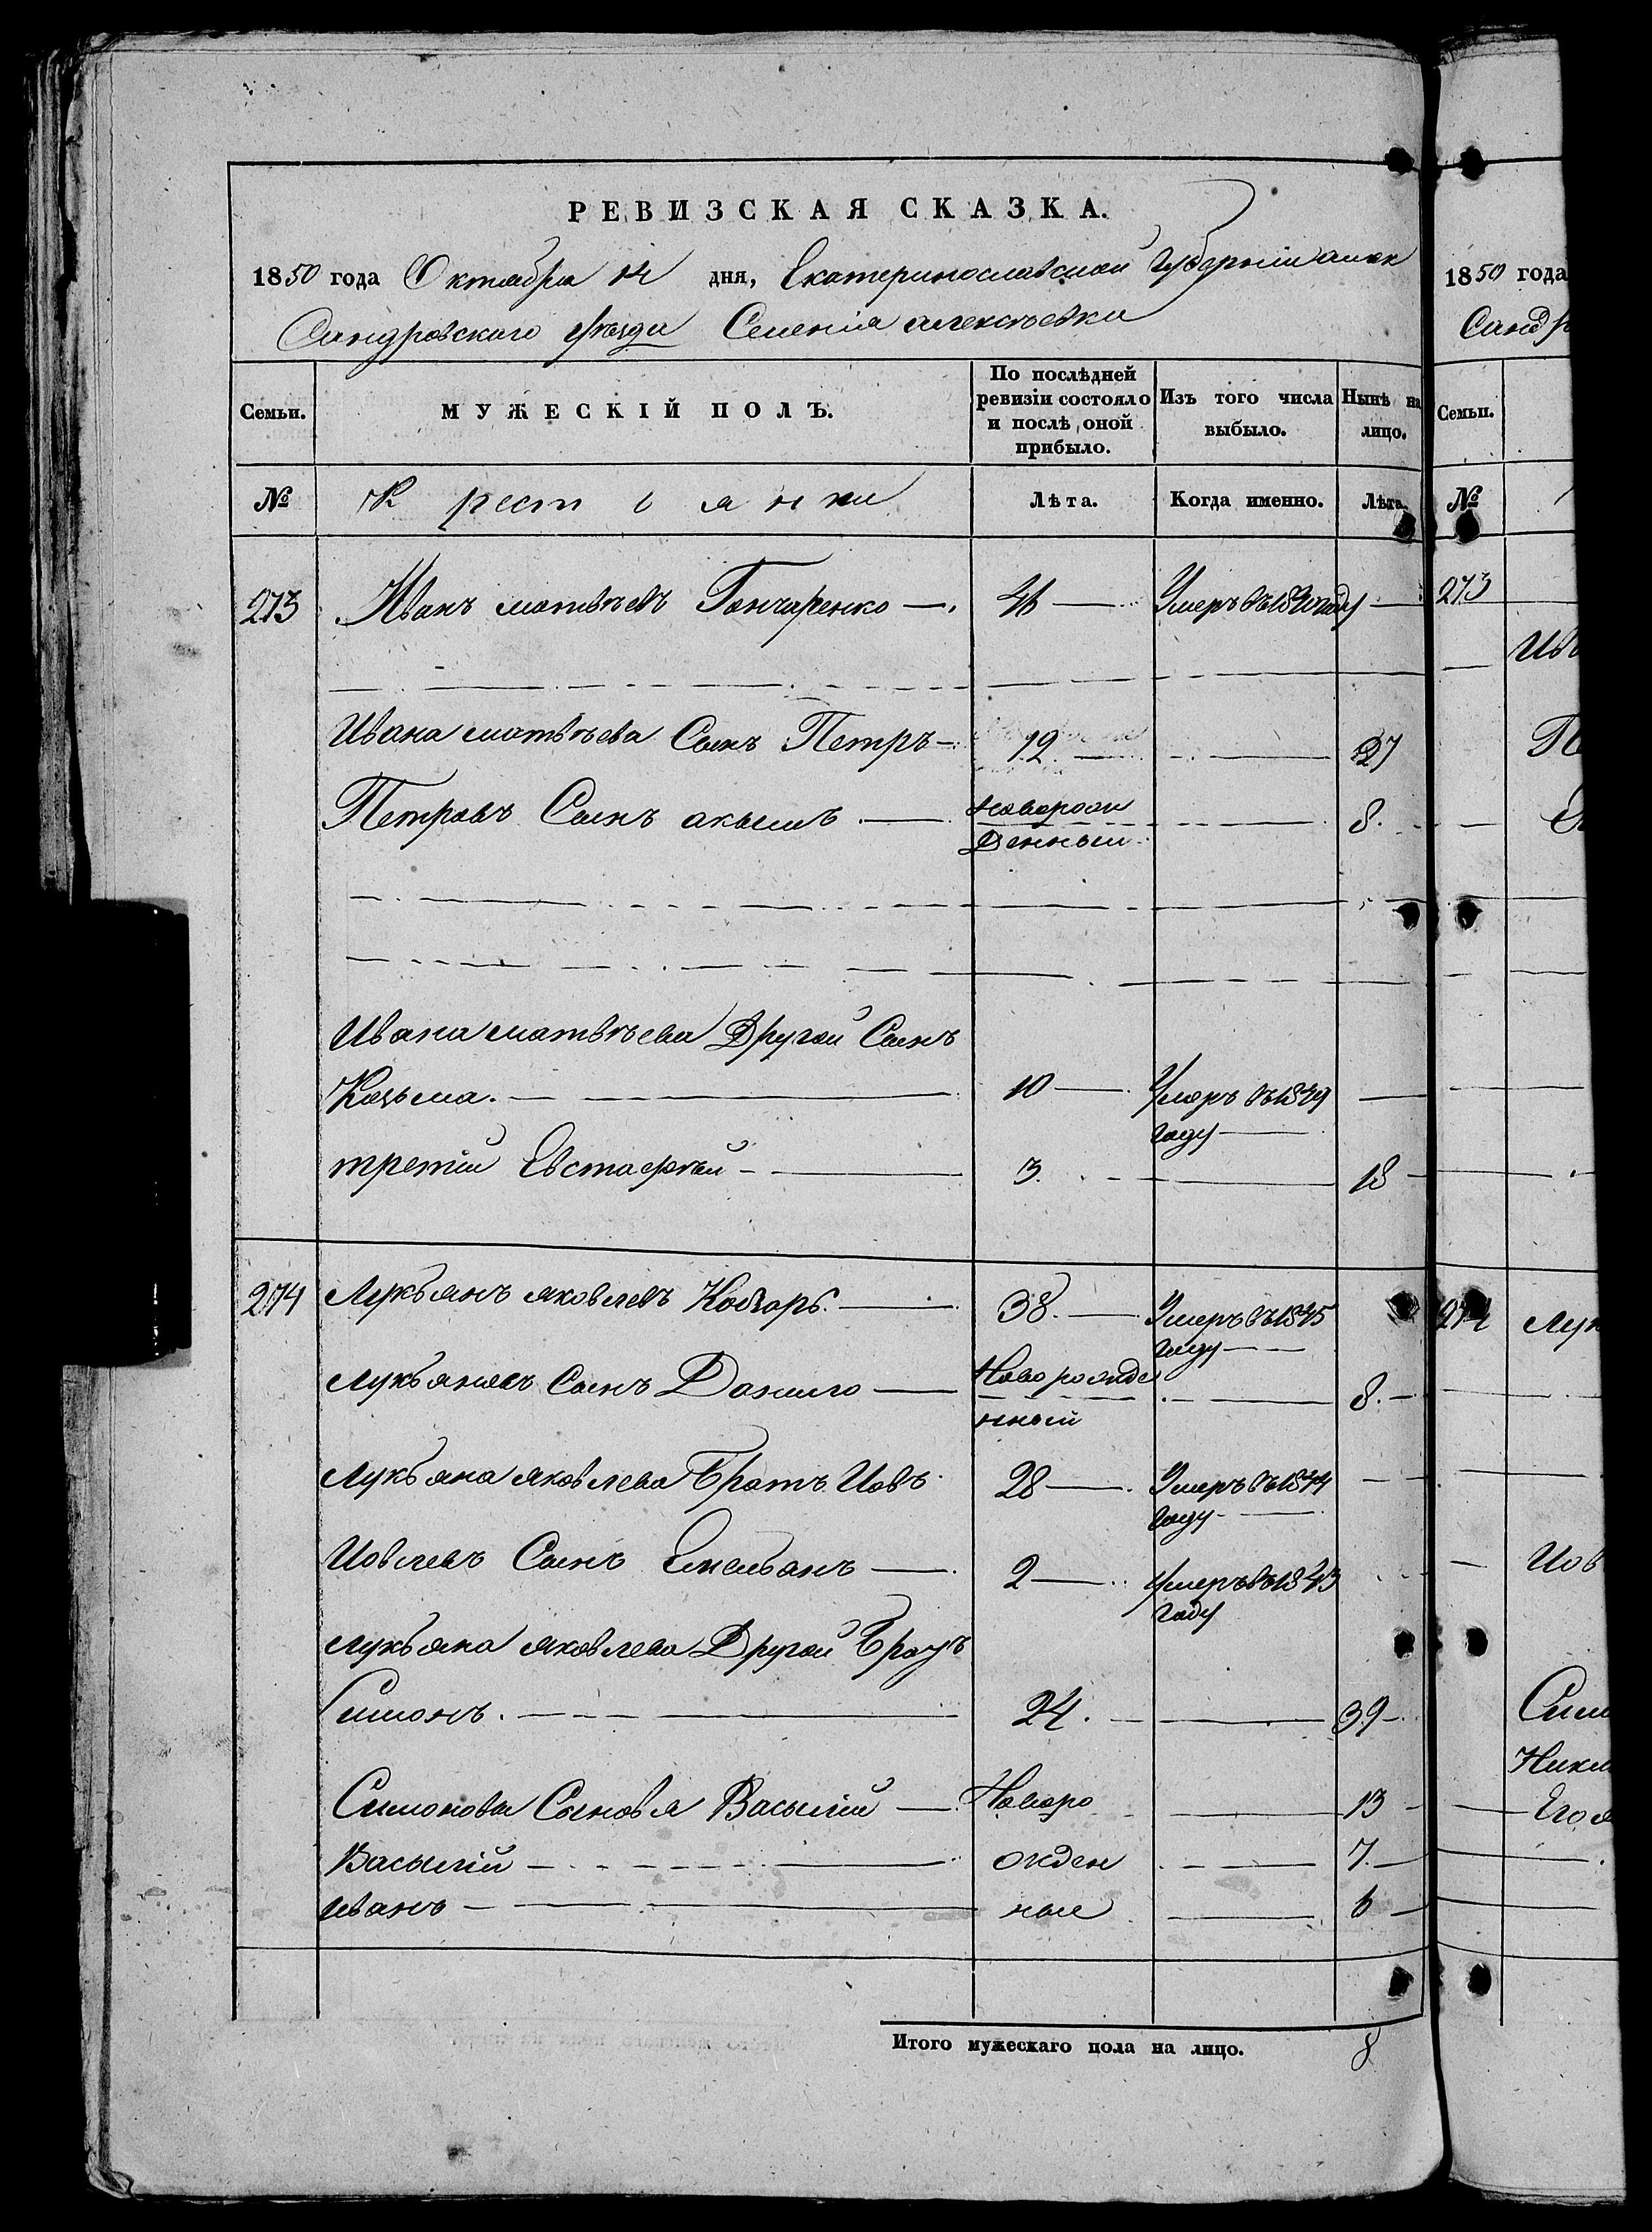 РЕВИЗСКАЯ СКАЗКА.
1850 года Октября 14 дня, Екатеринославской Губерніи алек
Сандровского уѣзда Селенія алексѣевки
Семьи.
МУЖЕСКІЙ ПОЛЪ.
По послѣдней ревизіи состояло и послѣ оной прибыло.
Изъ того числа выбыло.
Нынѣ на лицо.
№ Крестьянки Лѣта. Когда именно. Лѣта.
273 Иванъ матвѣевъ Гончаренко Умеръ въ 1840 году
Ивана матвѣева Сынъ Петръ 12 27
Петровъ Сынъ акымъ Новорож 8
Денный
Ивана матвѣева Другой Сынъ
Козьма. 10 Умеръ въ 1849
году
третій Евстафѣй 3. 18
274 Лукьянъ яковлевъ Кобзарь. 38. Умеръ въ 1845
году
Лукьяновъ Сынъ Данило Новорожде 8.
нный
Лукьяна яковлева Братъ Иовъ 28 Умеръ въ 1844
году
Иовлевъ Сынъ Емельянъ 2 Умеръ въ 1843
году
Лукьяна яковлева Другой Братъ
Симонъ. 24. 39
Симоновы Сыновья Васылій Новоро 13
Васылій жден 7.
иванъ ные 6
Итого мужескаго пола на лицо. 8
1850 года
Санд
Семьи.
№
273
Ив
П
274 Лук
Иов
Сим
Ники
Его